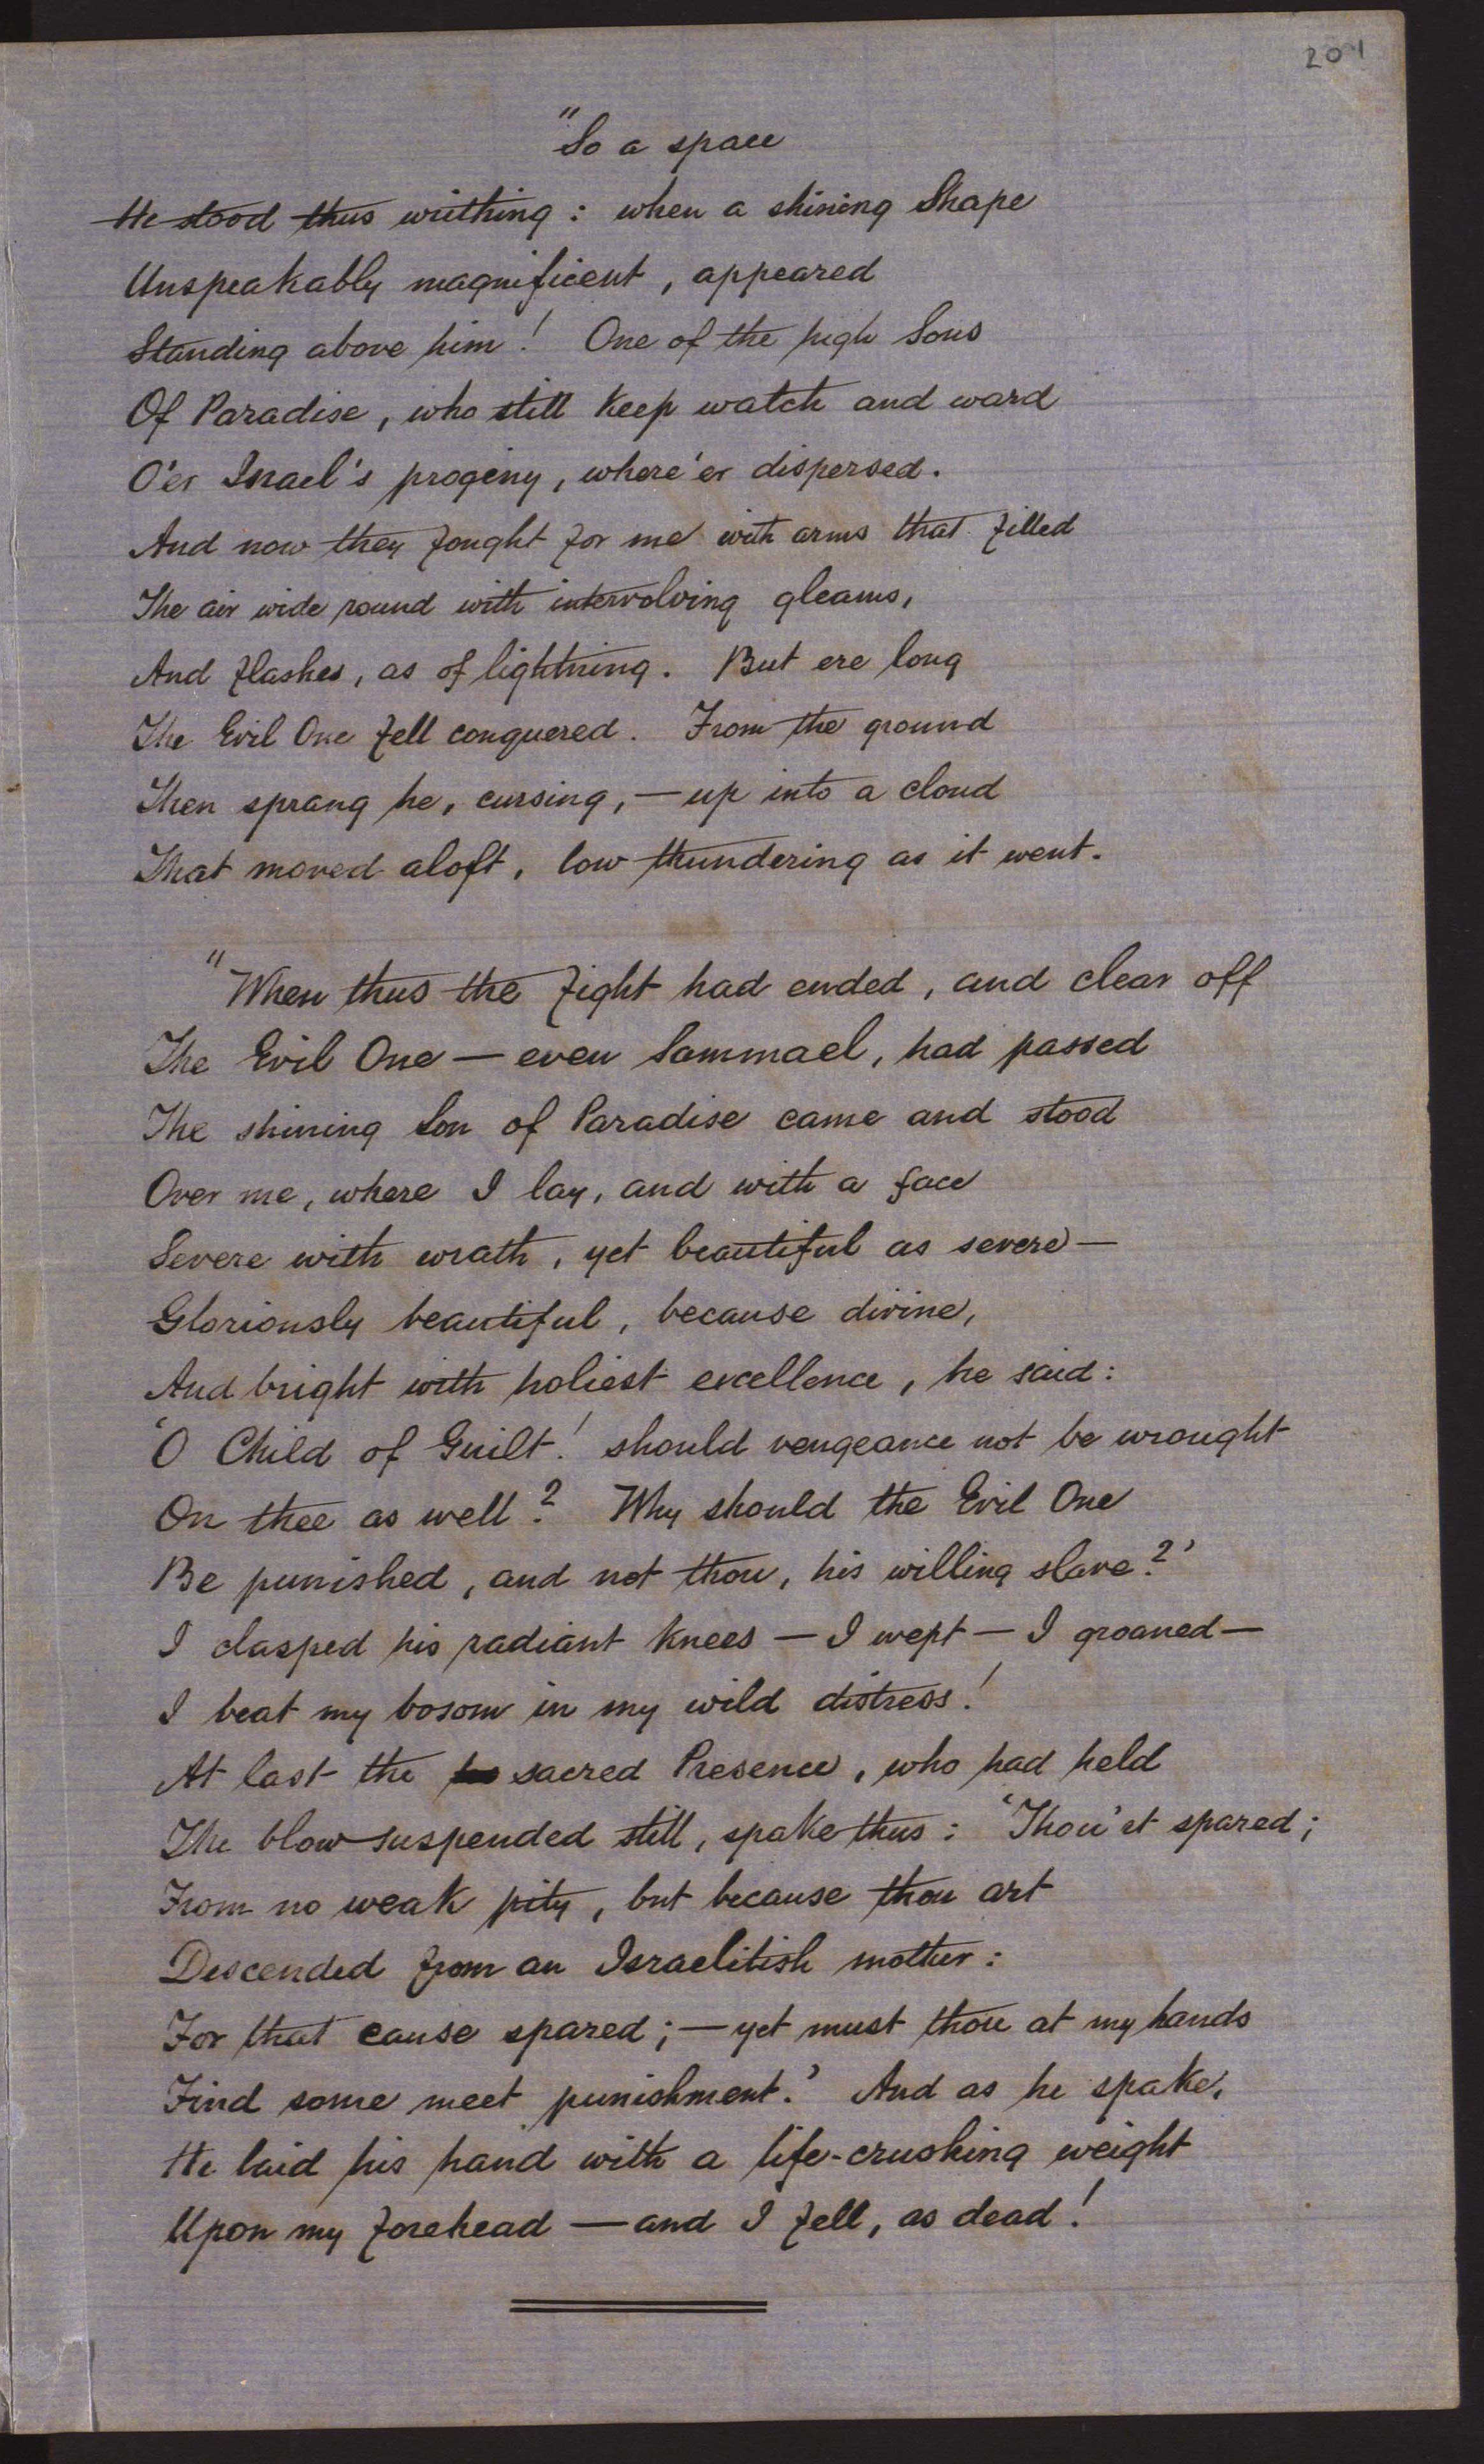 201
"So a space
He stood thus writhing: when a shining Shape
Unspeakably magnificent, appeared
Standing above him! One of the high Sons
Of Paradise, who still keep watch and ward
O'er Israel's progeny, where'er dispersed.
And now they fought for me with arms that filled
The air wide round with intervolving gleams,
And flashes, as of lightning. But ere long
The Evil One fell conquered. From the ground
Then sprang he, cursing,—up into a cloud
That moved aloft, low thundering as it went.
"When thus the fight had ended, and clear off
The Evil One—even Sammael, had passed
The shining Son of Paradise came and stood
Over me, where I lay, and with a face
Severe with wrath, yet beautiful as severe—
Gloriously beautiful, because divine,
And bright with holiest excellence, he said:
'O Child of Guilt! should vengeance not be wrought
On thee as well? Why should the Evil One
Be punished, and not thou, his willing slave?'
I clasped his radiant knees—I wept—I groaned—
I beat my bosom in my wild distress!
At last the sacred Presence, who had held
The blow suspended still, spake thus: 'Thou'rt spared;
From no weak pity, but because thou art
Descended from an Israelitish mother:
For that cause spared;—yet must thou at my hands
Find some meet punishment.' And as he spake,
He laid his hand with a life-crushing weight
Upon my forehead—and I fell, as dead!